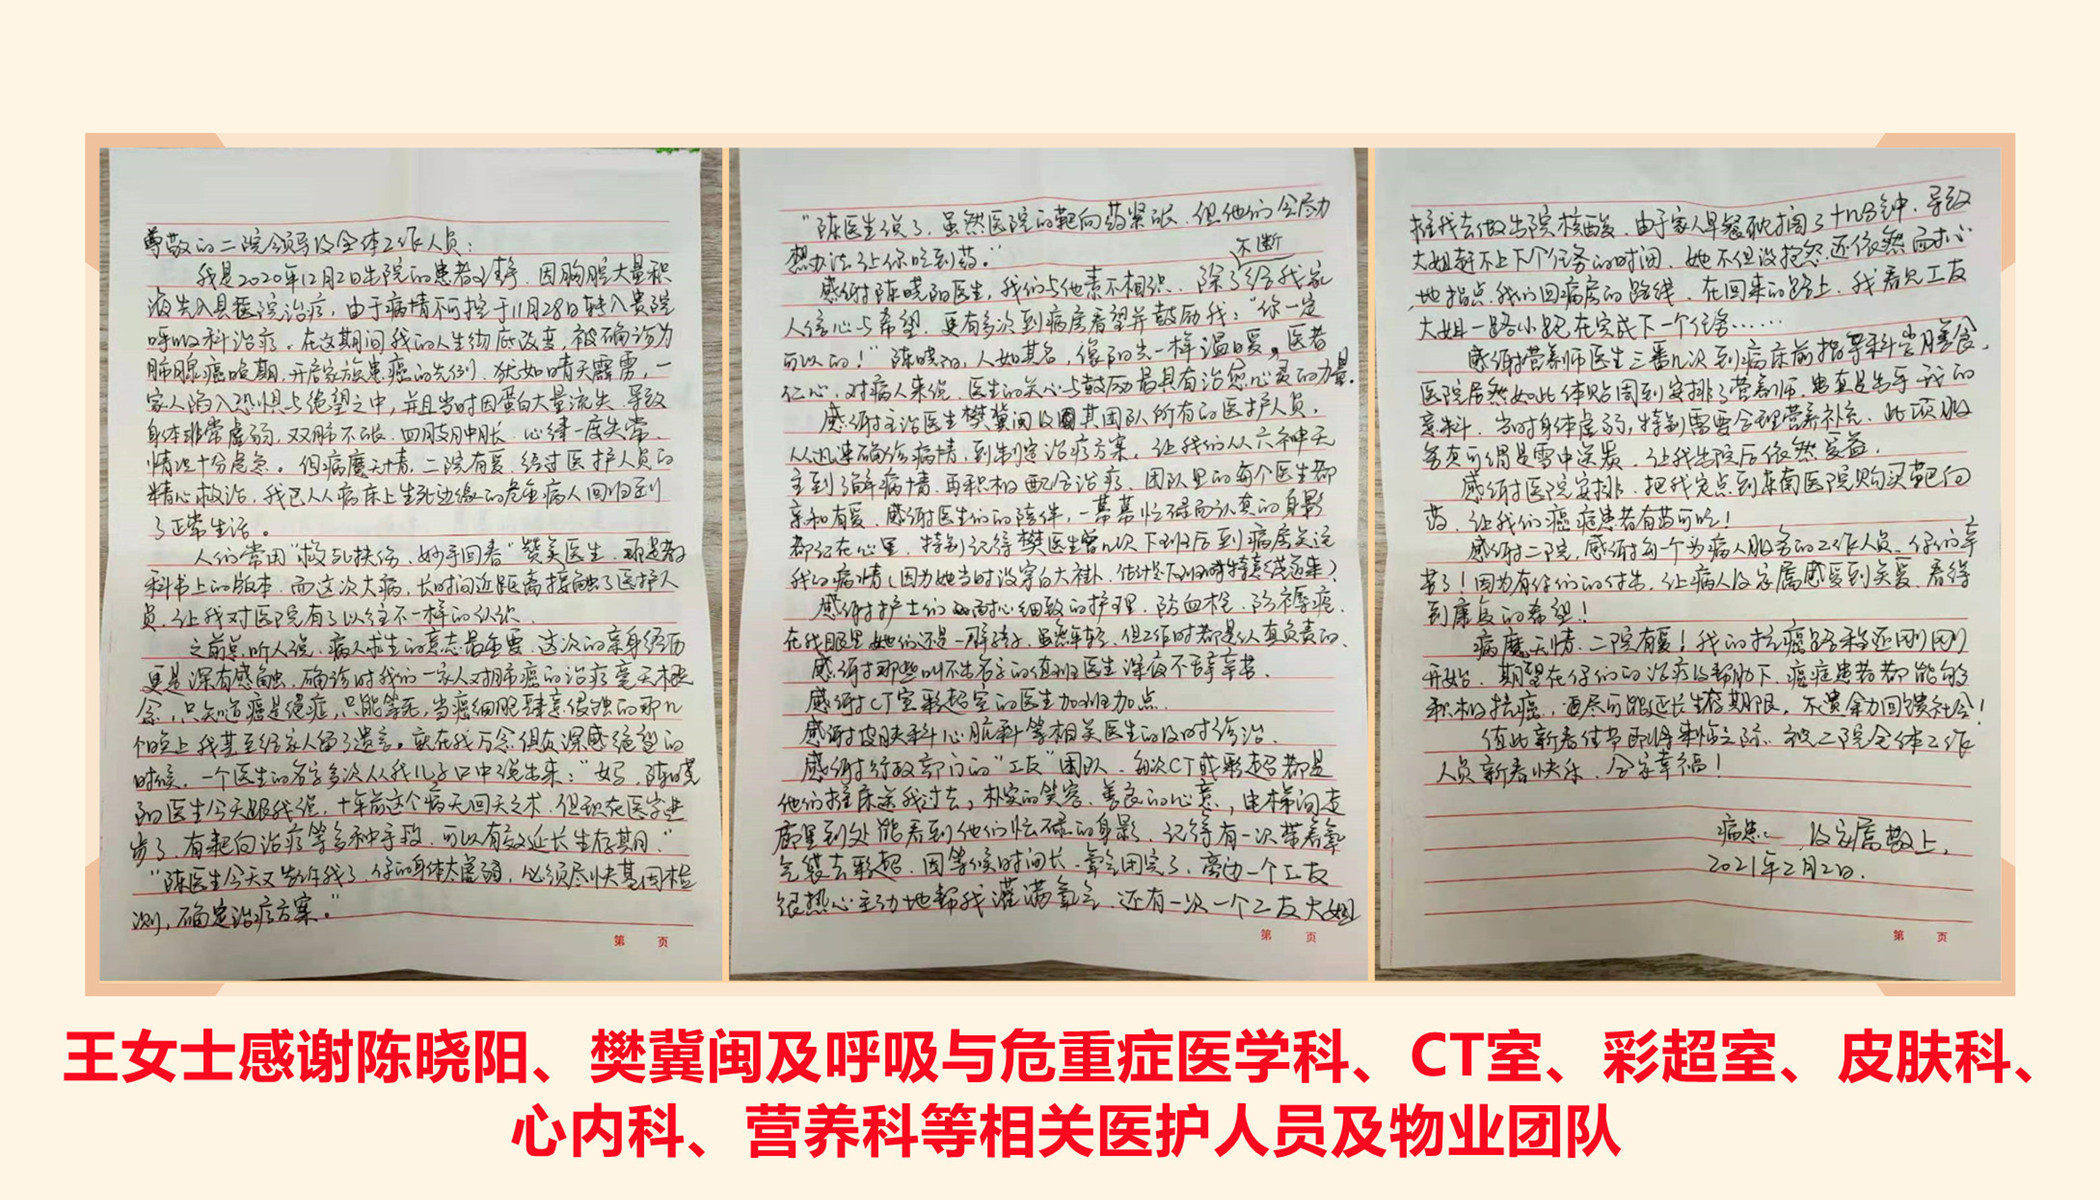 尊敬的二院领导及全体工作人员：
我是2020年12月2日出院的患者 因胸腔大量积
液先入县医院治疗，由于病情不可控于11月28日转入贵院
呼吸科治疗。在这期间我的人生彻底改变，被确诊为
肺腺癌晚期，开启家族患癌的先例，犹如晴天霹雳，一
家人陷入恐惧与绝望之中，并且当时因蛋白大量流失，导致
身体非常虚弱，双肺不张，四肢肿胀，心律一度失常、
情况十分危急。但病魔无情，二院有爱，经过医护人员的
精心救治，我已从病床上生死边缘的危重病人回归到
了正常生活。
人们常用“救死扶伤、妙手回春”赞美医生，那是教
科书上的版本，而这次大病，长时间近距离接触了医护人
员，让我对医院有了以往不一样的认识。
之前总听人说，病人求生的意志最重要，这次的亲身经历
更是深有感触，确诊时我们一家人对肺癌的治疗毫无概
念，只知道癌是绝症，只能等死，当癌细胞肆意侵蚀的那几
个晚上我甚至给家人留了遗言。就在我万念俱灰深感绝望的
时候，一个医生的名字多次从我儿子口中说出来：“妈，陈晓
阳医生今天跟我说，十年前这个病无回天之术，但现在医学进
步了，有靶向治疗等多种手段，可以有效延长生存期。”
“陈医生今天又告诉我了，你的身体太虚弱，必须尽快基因检
测，确定治疗方案。”
第 页
“陈医生说了，虽然医院的靶向药紧张，但他们会尽力
想办法让你吃到药。”
不断
感谢陈晓阳医生，我们与他素不相识，除了给我家
人信心与希望，更有多次到病房看望并鼓励我：“你一定
可以的！”陈晓阳，人如其名，像阳光一样温暖，医者
仁心，对病人来说，医生的关心与鼓励最具有治愈心灵的力量。
感谢主治医生樊冀闽及其团队所有的医护人员，
从迅速确诊病情，到制定治疗方案，让我们从六神无
主到了解病情，再积极配合治疗，团队里的每个医生都
亲和有爱，感谢医生们的陪伴，一幕幕忙碌而认真的身影
都记在心里，特别记得樊医生曾几次下班后到病房关注
我的病情（因为她当时没穿白大褂，估计是下班时特意绕道来）
感谢护士们耐心细致的护理，防血栓、防褥疮，
在我眼里她们还是一群孩子，虽然年轻，但工作时都是认真负责的、
感谢那些叫不出名字的值班医生深夜不辞辛苦、
感谢CT室彩超室的医生加班加点、
感谢皮肤科心脏科等相关医生的及时诊治、
感谢行政部门的“工友”团队，每次CT或彩超都是
他们推床送我过去，朴实的笑容，善良的心意，电梯间走
廊里到处能看到他们忙碌的身影，记得有一次带着氧
气袋去彩超，因等候时间长，氧气用完了，旁边一个工友
很热心主动地帮我灌满氧气，还有一次一个工友大姐
第 页
推我去做出院核酸，由于家人早餐耽搁了十几分钟，导致
大姐赶不上下个任务的时间，她不但没抱怨还依然耐心
地指点我们回病房的路线，在回来的路上，我看见工友
大姐一路小跑在完成下一个任务……
感谢营养师医生三番几次到病床前指导科学膳食，
医院居然如此体贴周到安排了营养师，真是出乎我的
意料，当时身体虚弱，特别需要合理营养补充，此项服
务真可谓是雪中送炭，让我出院后依然受益。
感谢医院安排，把我定点到东南医院购买靶向
药，让我们癌症患者有药可吃！
感谢二院，感谢每一个为病人服务的工作人员，你们辛
苦了！因为有你们的付出，让病人及家属感受到关爱，看得
到康复的希望！
病魔无情，二院有爱！我的抗癌路程还刚刚
开始，期望在你们的治疗及帮助下，癌症患者都能够
积极抗癌，尽可能延长生存期限，不遗余力回馈社会！
值此新春佳节即将来临之际，祝二院全体工作
人员新春快乐，合家幸福！
病患： 及家属敬上，
2021年2月2日.
第 页
王女士感谢陈晓阳、樊冀闽及呼吸与危重症医学科、CT室、彩超室、皮肤科、
心内科、营养科等相关医护人员及物业团队